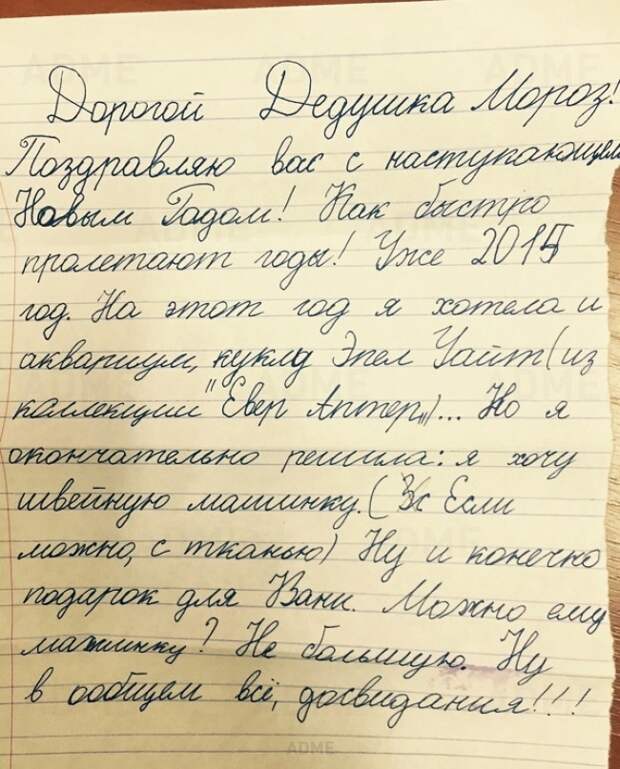 Дорогой Дедушка Мороз!
Поздравляю вас с наступающем
Новым Гадом! Как быстро
пролетают годы! Уже 2015
год. На этот год я хотела и
аквариум, куклу Эпел Уайт (из
коллекции "Евер Аптер„)... Но я
окончательно решила: я хочу
швейную машинку. ( Если
можно, с тканью) Ну и конечно
подарок для Вани. Можно ему
машинку? Не большую. Ну
в ообщем всё, досвидания!!!
ADME